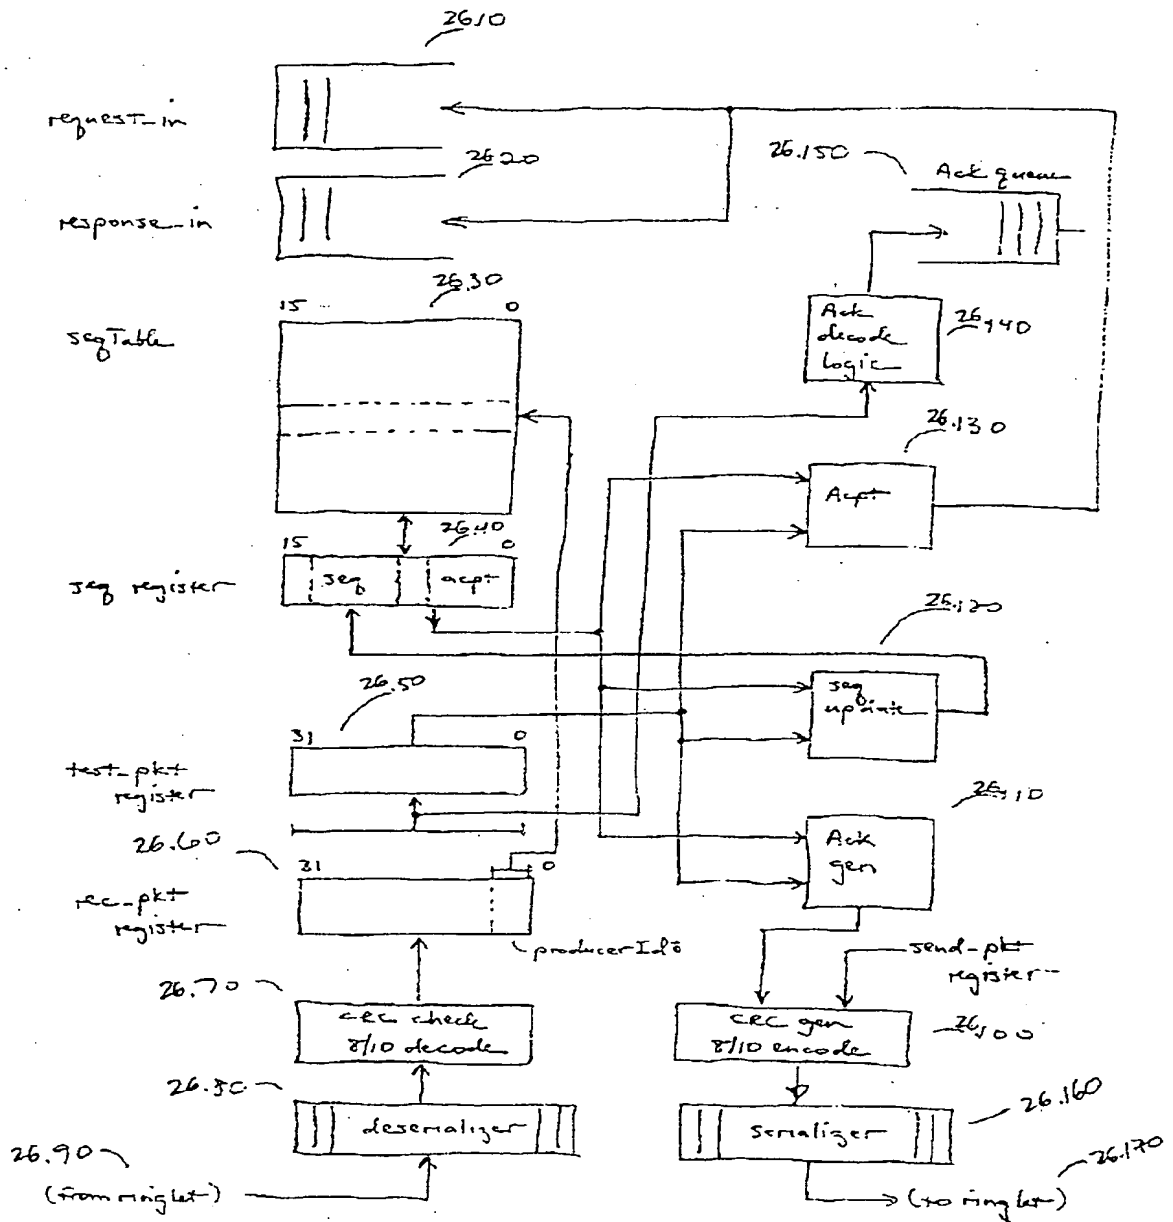 26.10
request_in
26.20
26.150
Ack queue
response_in
26.30
15 0
seqTable
Ack
decode
logic
26.140
26.130
Acpt
26.40
15 0
seq register
seq acpt
26.120
26.50
seq
update
31 0
test_pkt
register
26.110
26.60
Ack
gen
31 0
rec_pkt
register
producerId's
send_pkt
register
26.70
CRC check
8/10 decode
CRC gen
8/10 encode
26.100
26.80
deserializer
serializer
26.160
26.90
(from ringlet)
(to ringlet)
26.170